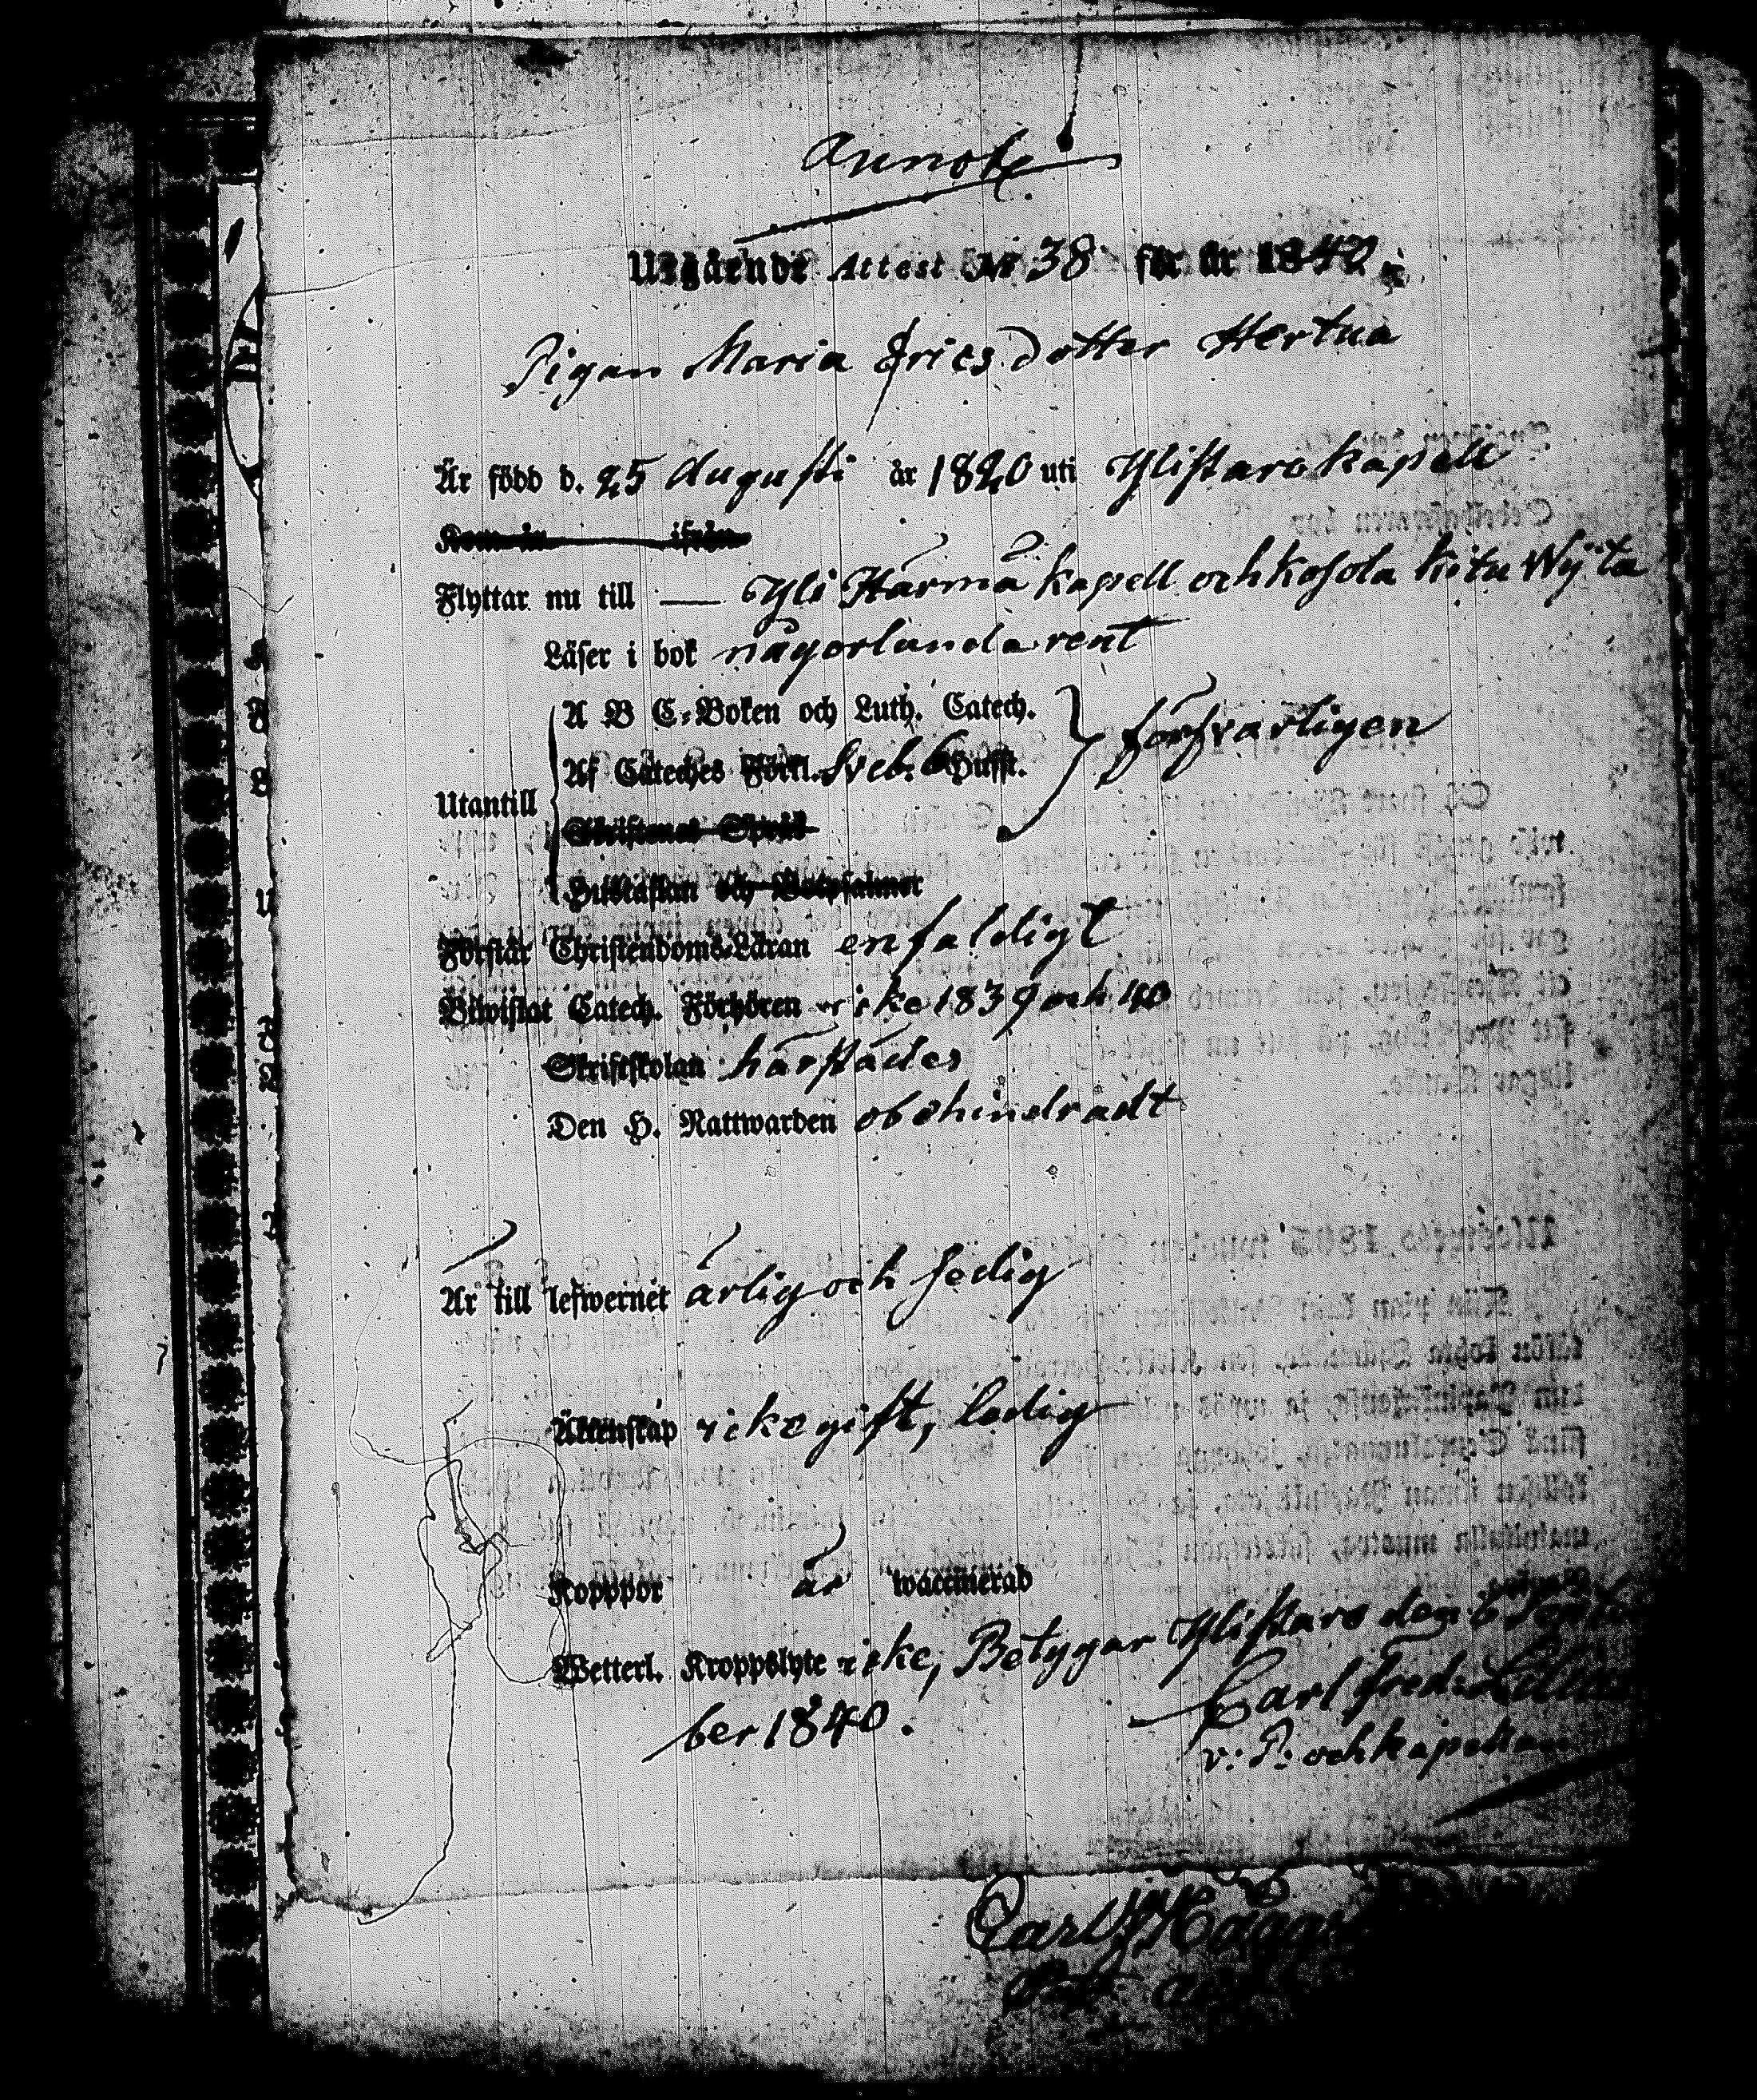 Annot.
Utgående Attest № 38 för år 1840.
Pigan Maria Ericsdotter Hertua
Är född d. 25 Augusti år 1820 uti Ylistaro kapell
Kom år ifrån
Flyttar nu till — Yli Härmä kapell och kosola
Läser i bok någorlunda rent
A B C-Boken och Luth. Catech.
Af Cateches Förkl. Sveb. 6 Hufst.
försvarligen
Utantill
Skriftenes Språk
Hustaflan och Botpsalmer
Förstår Christendoms-Läran enfaldigt
Biwistat Catech. Förhören icke 1839 och 40
Skriftskolan härstädes
Den H. Nattwarden obehindradt
Är till lefwernet ärlig och sedig
Äktenskap icke gift, ledig
Kopppor är waccinerad
Wetterl. Kroppslyte icke, Betygar Ylistaro den 6 Septem
ber 1840.
Carl Fred:
v: P: och kapellan
Carl